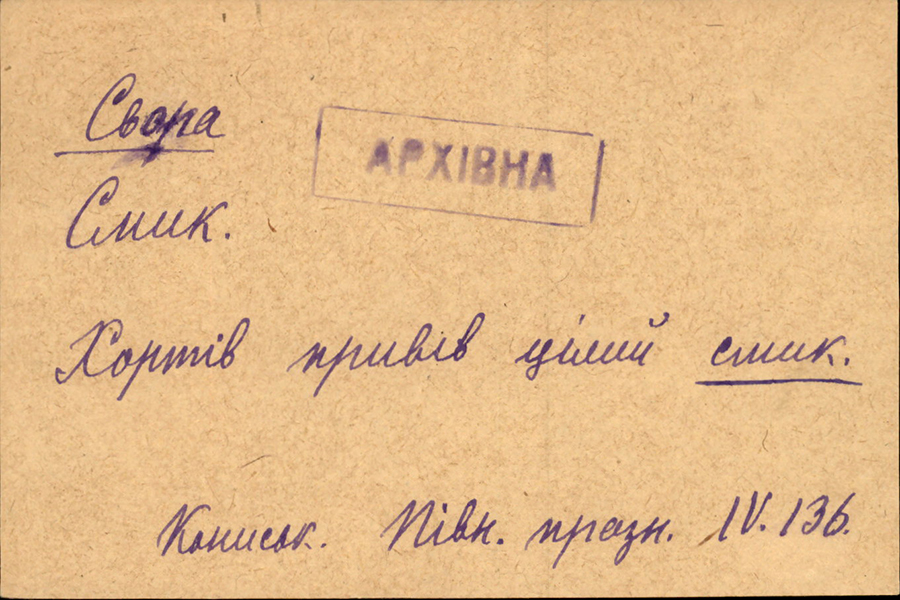 Свора
АРХІВНА
Смик.
Хортів привів цілий смик.
Кониськ. Півн. празн. IV. 136.